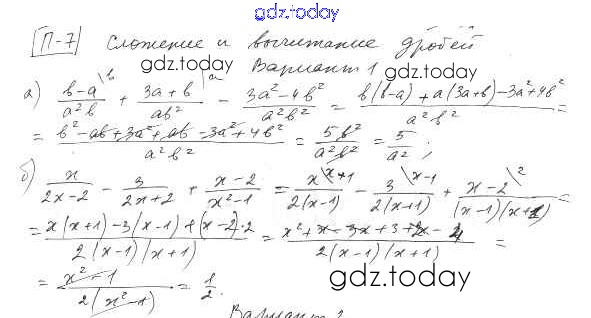 gdz.today
П-7 Сложение и вычитание дробей
gdz.today
Вариант 1
а) (b-a)\b / a²b + (3a+b)\a / ab² - (3a²-4b²) / a²b² = (b(b-a)+a(3a+b)-3a²+4b²) / a²b² =
= (b²-ab+3a²+ab-3a²+4b²) / a²b² = 5b² / a²b² = 5 / a² ;
gdz.today
б) x / (2x-2) - 3 / (2x+2) + (x-2) / (x²-1) = x\x+1 / 2(x-1) - 3\x-1 / 2(x+1) + (x-2)\2 / (x-1)(x+1) =
= (x(x+1)-3(x-1)+(x-2)·2) / 2(x-1)(x+1) = (x²+x-3x+3+2x-4) / 2(x-1)(x+1) =
= (x²-1) / 2(x²-1) = 1 / 2 .
gdz.today
Вариант 2